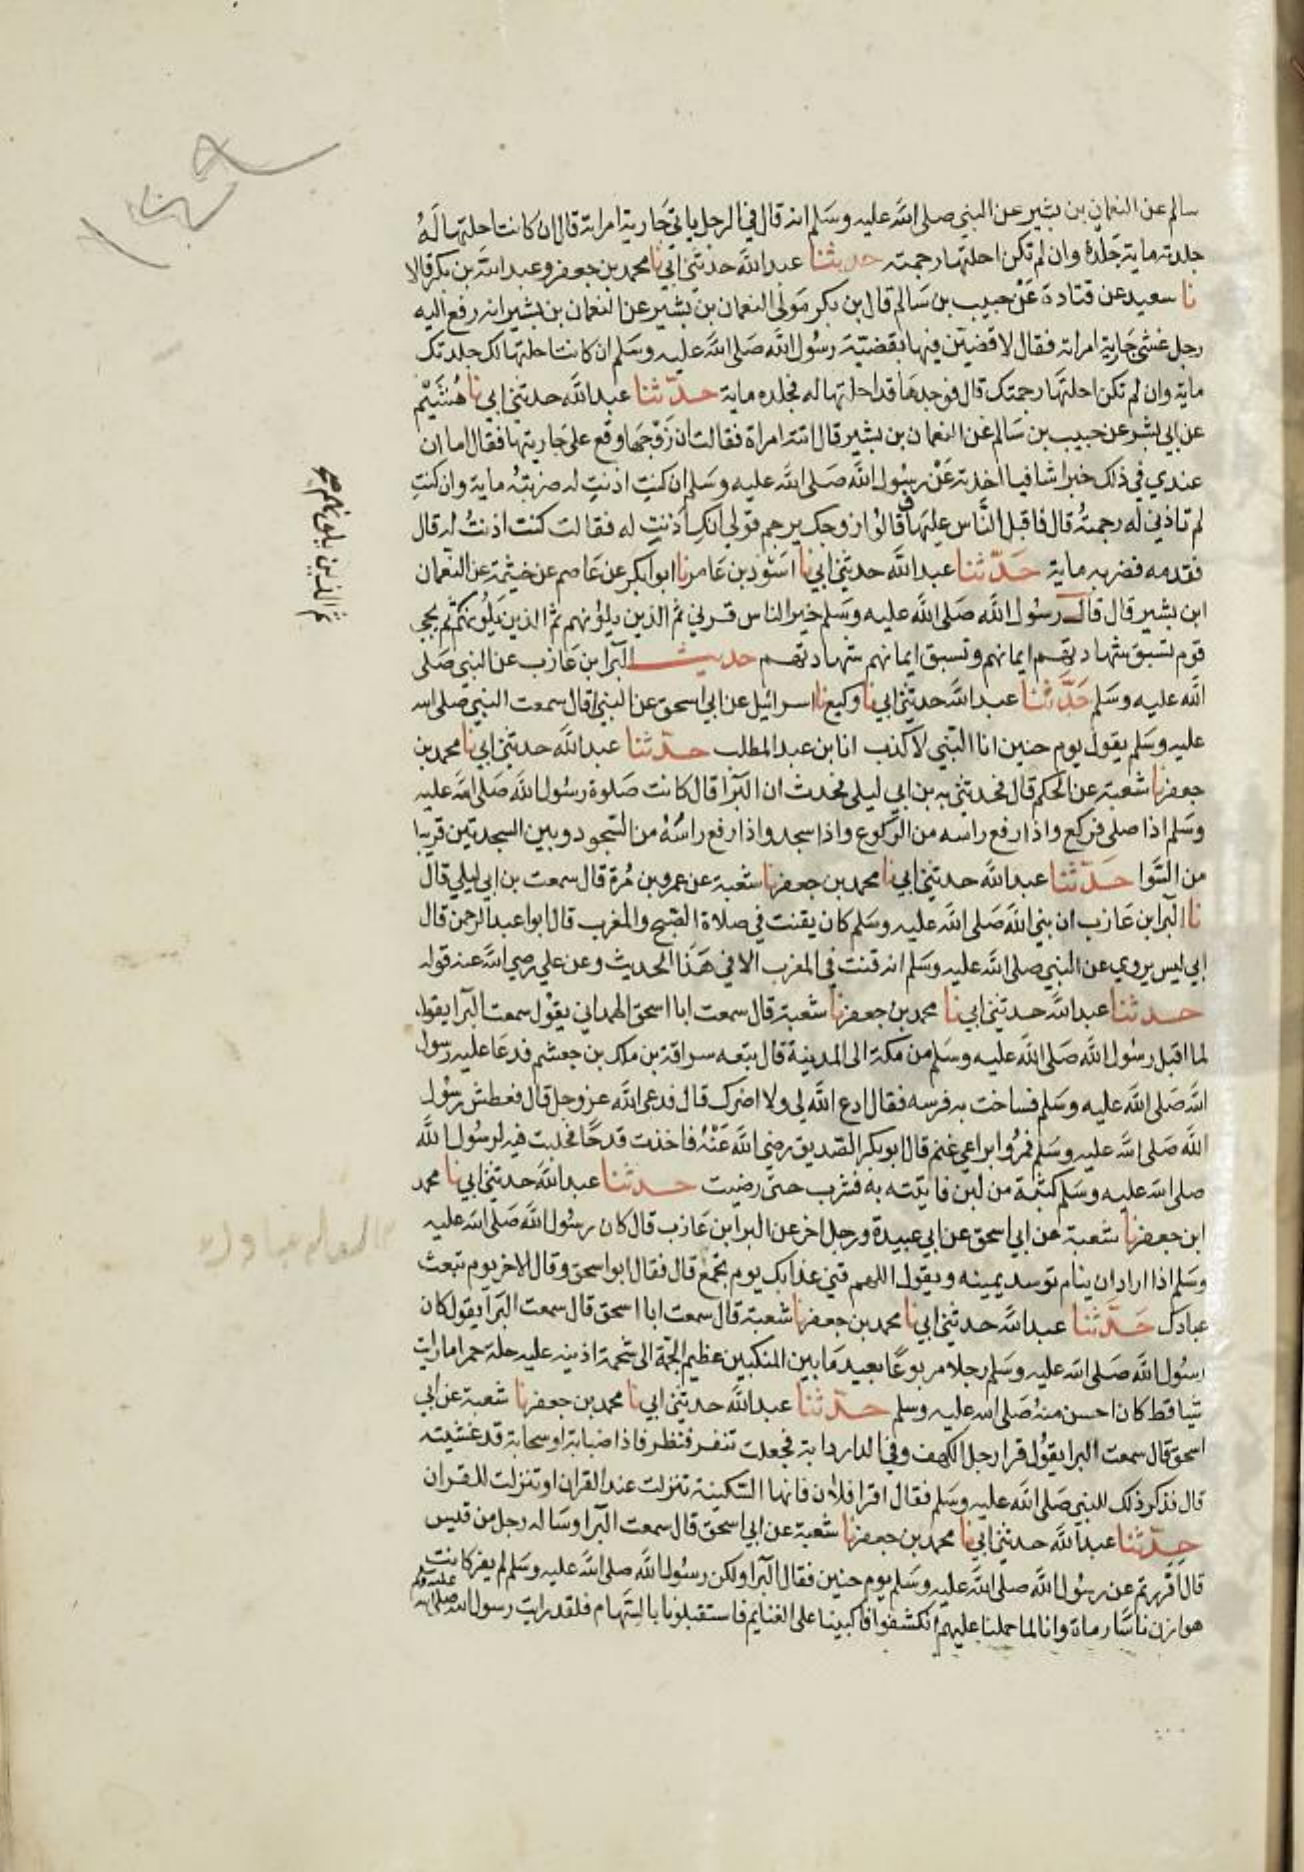 سالم عن النعمان بن بشير عن النبي صلى الله عليه وسلم انه قال في الرجل ياتي جارية امراته قال ان كانت احلتها له
جلدته ماية جلدة وان لم تكن احلتها رجمته حدثنا عبد الله حدثني ابي نا محمد بن جعفر وعبد الله بن بكر قالا
نا سعيد عن قتادة عن حبيب بن سالم قال بن بكر مولى النعمان بن بشير عن النعمان بن بشير انه رفع اليه
رجل غشي جارية امراته فقال لاقضين فيها بقضية رسول الله صلى الله عليه وسلم ان كانت احلتها لك جلدتك
ماية وان لم تكن احلتها رجمتك قال فوجدها قد احلتها له فجلده ماية حدثنا عبد الله حدثني ابي نا هشيم
عن ابي بشر عن حبيب بن سالم عن النعمان بن بشير قال اتته امراة فقالت ان زوجها وقع على جاريتها فقال اما ان
عندي في ذلك خبرا شافيا اخذته عن رسول الله صلى الله عليه وسلم ان كنتِ اذنتِ له ضربته ماية وان كنتِ
لم تاذني له رجمته قال فاقبل الناس عليها قالوا زوجك يرجم قولي انك اذنت له فقالت كنت اذنت له قال
فقدمه فضربه ماية حدثنا عبد الله حدثني ابي نا اسود بن عامر نا ابو بكر عن عاصم عن خيثمة عن النعمان
ابن بشير قال قال رسول الله صلى الله عليه وسلم خير الناس قرني ثم الذين يلونهم ثم الذين يلونهم ثم يجي
قوم تسبق شهادتهم ايمانهم وتسبق ايمانهم شهادتهم حديث البرا بن عازب عن النبي صلى
الله عليه وسلم حدثنا عبد الله حدثني ابي نا وكيع نا اسرائيل عن ابي اسحق عن قال سمعت النبي صلى الله
عليه وسلم يقول يوم حنين انا النبي لا كذب انا بن عبد المطلب حدثنا عبد الله حدثني ابي نا محمد بن
جعفر نا شعبة عن الحكم قال فحدثني به بن ابي ليلى فحدث ان البرا قال كانت صلوة رسول الله صلى الله عليه
وسلم اذا صلى فركع واذا رفع راسه من الركوع واذا سجد واذا رفع راسه من السجود وبين السجدتين قريبا
من السوا حدثنا عبد الله حدثني ابي نا محمد بن جعفر نا شعبة عن عمرو بن مرة قال سمعت بن ابي ليلي قال
نا البرا بن عازب ان نبي الله صلى الله عليه وسلم كان يقنت في صلاة الصبح والمغرب قال ابو عبد الرحمن قال
ابي ليس يروي عن النبي صلى الله عليه وسلم انه قنت في المغرب الا في هذا الحديث وعن علي رضي الله عنه قوله
حدثنا عبد الله حدثني ابي نا محمد بن جعفر نا شعبة قال سمعت ابا اسحق الهمداني يقول سمعت البرا يقول
لما اقبل رسول الله صلى الله عليه وسلم من مكة الى المدينة قال تبعه سراقة بن ملك بن جعشم فدعا عليه رسول
الله صلى الله عليه وسلم فساخت به فرسه فقال ادع الله لي ولا اضرك قال فدعى الله عز وجل قال فعطش رسول
الله صلى الله عليه وسلم فمروا براعي غنم قال ابو بكر الصديق رضي الله عنه فاخذت قدحا فحلبت فيه لرسول الله
صلى الله عليه وسلم كثبة من لبن فاتيته به فشرب حتى رضيت حدثنا عبد الله حدثني ابي نا محمد
ابن جعفر نا شعبة عن ابي اسحق عن ابي عبيدة ورجل اخر عن البرا بن عازب قال كان رسول الله صلى الله عليه
وسلم اذا اراد ان ينام توسد يمينه ويقول اللهم قني عذابك يوم تجمع قال فقال ابو اسحق وقال الاخر يوم تبعث
عبادك حدثنا عبد الله حدثني ابي نا محمد بن جعفر نا شعبة قال سمعت ابا اسحق قال سمعت البرا يقول كان
رسول الله صلى الله عليه وسلم رجلا مربوعا بعيد ما بين المنكبين عظيم الجمة الى شحمة اذنيه عليه حلة حمرا ما رايت
شيا قط كان احسن منه صلى الله عليه وسلم حدثنا عبد الله حدثني ابي نا محمد بن جعفر نا شعبة عن ابي
اسحق قال سمعت البرا يقول قرا رجل الكهف وفي الدار دابة فجعلت تنفر فنظر فاذا ضبابة او سحابة قد غشيته
قال فذكر ذلك للنبي صلى الله عليه وسلم فقال اقرا فلان فانها السكينة تنزلت عند القران او تنزلت للقران
حدثنا عبد الله حدثني ابي نا محمد بن جعفر نا شعبة عن ابي اسحق قال سمعت البرا وساله رجل من قيس
قال افررتم عن رسول الله صلى الله عليه وسلم يوم حنين فقال البرا ولكن رسول الله صلى الله عليه وسلم لم يفر كانت
هوازن ناسا رماة وانا لما حملنا عليهم انكشفوا فاكبينا على الغنايم فاستقبلونا بالسهام فلقد رايت رسول الله صلى الله عليه وسلم
ثم الذين يلونهم صح